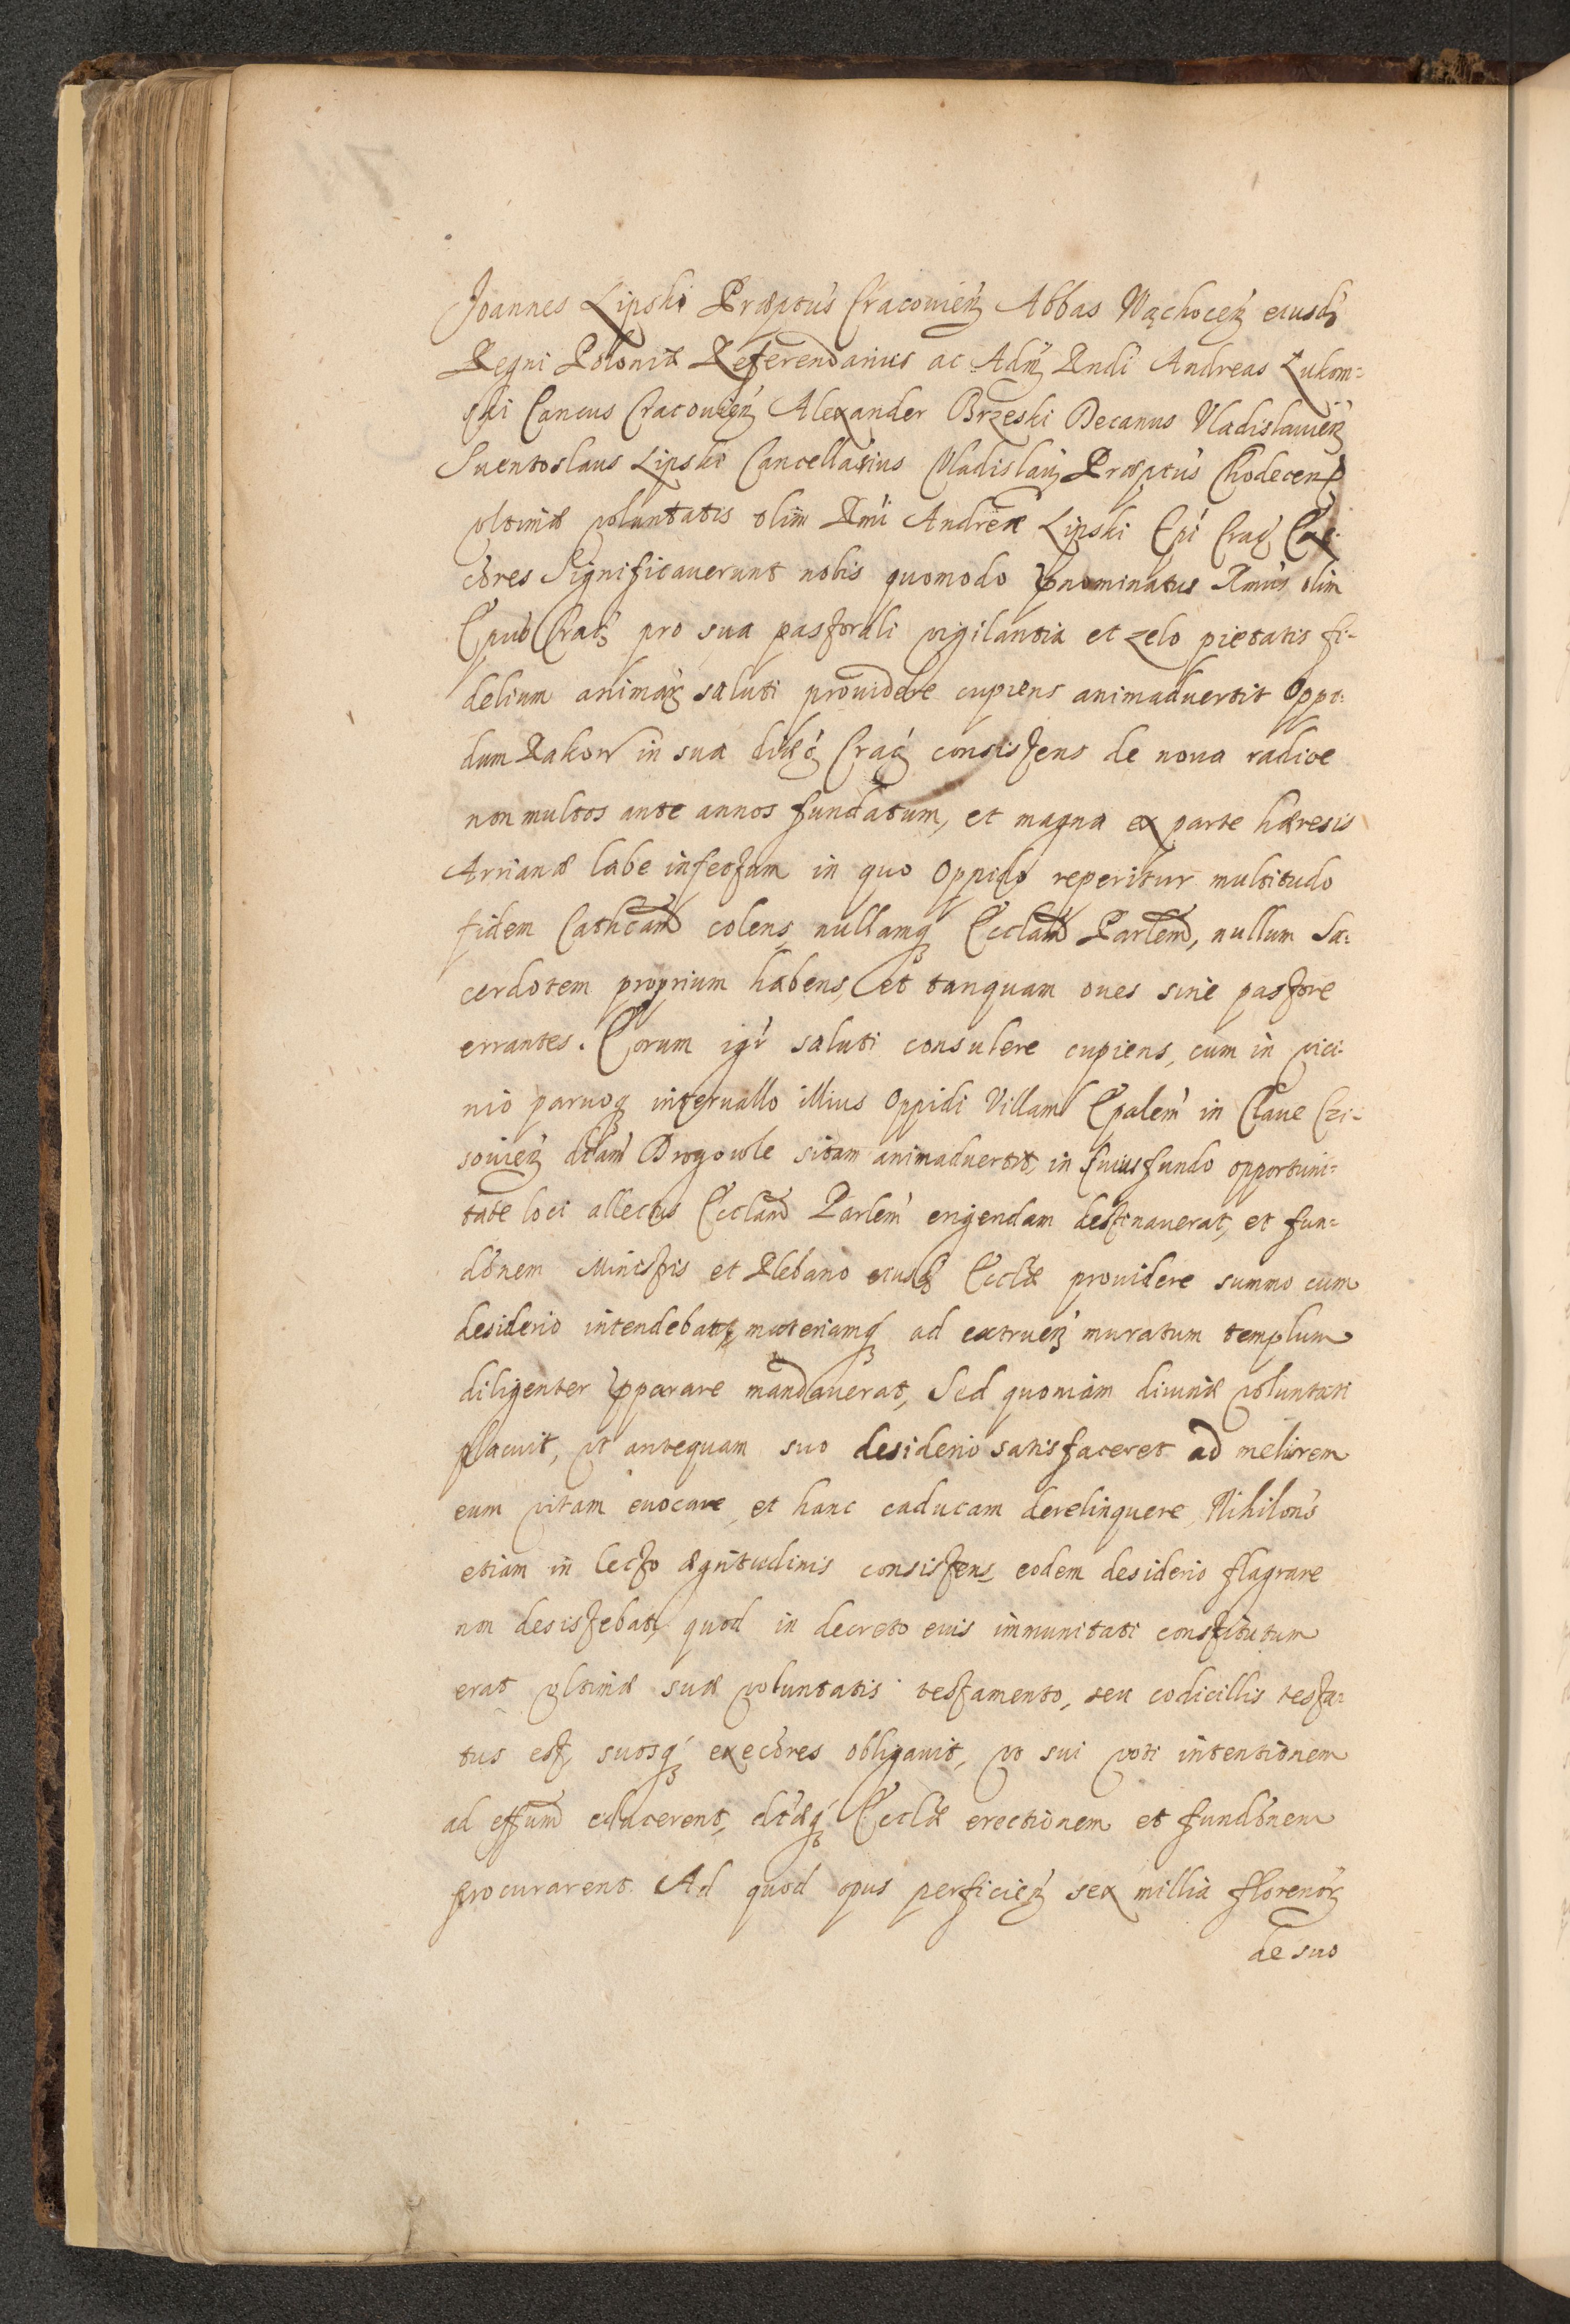 Joannes Lipski Præptús Cracouieñ Abbas Wąchoceñ eiusdẽ
Regni Poloniæ Referendarius ac Adm̃ Rndi Andreas Lukom=
ski Cancus Cracouieñ Alexander Brzeski Decanus Vladislauieñ
Suentoslaus Lipski Cancellarius Vladislauȝ Præptús Chodecens
vltimæ voluntatis olim Rmi Andreæ Lipski Epi Cracȝ Exe-
cores Significauerunt nobis quomodo pnominatus Rmus olim
Epus Cracȝ pro sua pastorali vigilantia et zelo pietatis fi-
delium animarȝ saluti prouidere cupiens animaduertit Oppi=
dum Rakow in sua diæcȝ Cracȝ consistens de noua radice
non multos ante annos fundatum, et magna ex parte hæresis
Arrianæ labe infectam in quo Oppido reperitur multitudo
fidem Cathcam colens, nullamqȝ Ecclam Parlem, nullum Sa=
cerdotem proprium habens, et tanquam oues sine pastore
errantes. Eorum igr saluti consulere cupiens, cum in vici-
nio paruoqȝ interuallo illius Oppidi Villam Epalem in Claue Czi-
souieñ dctam Drogowle sitam animaduertit, in cuius fundo opportuni=
tate loci allectus Ecclam Parlem erigendam destinauerat, et fun=
donem Ministris et Plebano eiusd Ecclæ prouidere summo cum
desiderio intendebat, materiamqȝ ad extrueñ muratum templum
diligenter pparare mandauerat, Sed quoniam diuinæ voluntati
placuit, vt antequam suo desiderio satisfaceret ad meliorem
eum vitam euocare, et hanc caducam derelinquere, Nihilons
etiam in lecto ægritudinis consistens, eodem desiderio flagrare
non desistebat, quod in decreto euis immunitati constitutum
erat vltimæ suæ voluntatis testamento, seu codicillis testa=
tus est, suosqȝ execores obligauit, vt sui voti intentionem
ad effum educerent, dctæqȝ Ecclæ erectionem et fundonem
procurarent. Ad quod opus perficieñ sex millia florenorȝ
de suo